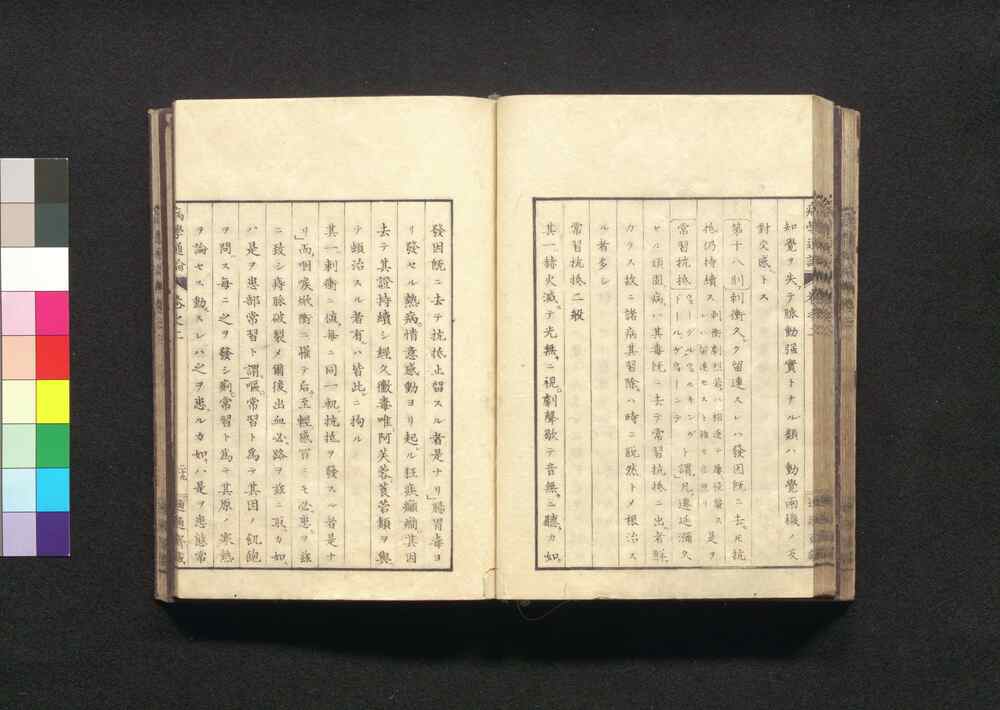 知覺ヲ失テ脉動强實トナル類ハ動覺兩機ノ反
對交感トス
第十八則刺衝久ク留連スレハ發因既ニ去モ抗
抵仍持續ス
常習抗抵ト謂凡遷延彌久
セル頑固病ハ其毒既ニ去テ常習抗抵ニ出者鮮
カラス故ニ諸病其習除ハ時ニ脱然トメ根治ス
ル者多シ
常習抗抵二般
其一赫火滅テ光無ニ視劇聲歇テ音無ニ聽カ如
發因既ニ去テ抗抵止留スル者是ナリ腸胃毒ヨ
リ發セル熱病情意感動ヨリ起ル狂疾癲癇其因
去テ其證持續シ經久黴毒唯阿芙蓉莨菪類ヲ與
テ頓治スル者有ハ皆此ニ拘ル
其一刺衝ニ値每ニ同一般抗抵ヲ發スル者是ナ
リ而咽喉焮衝ニ罹テ后至輕感冒ニモ必患ヲ玆
ニ致シ痔脉破裂メ爾後出血必路ヲ玆ニ取カ如
ハ是ヲ患部常習ト謂嘔常習ト為テ其因ノ飢飽
ヲ問ス每ニ之ヲ發シ痢常習ト為テ其原ノ寒熱
ヲ論セス動スレハ之ヲ患ルカ如ハ是ヲ患態常
病學通論
卷之二